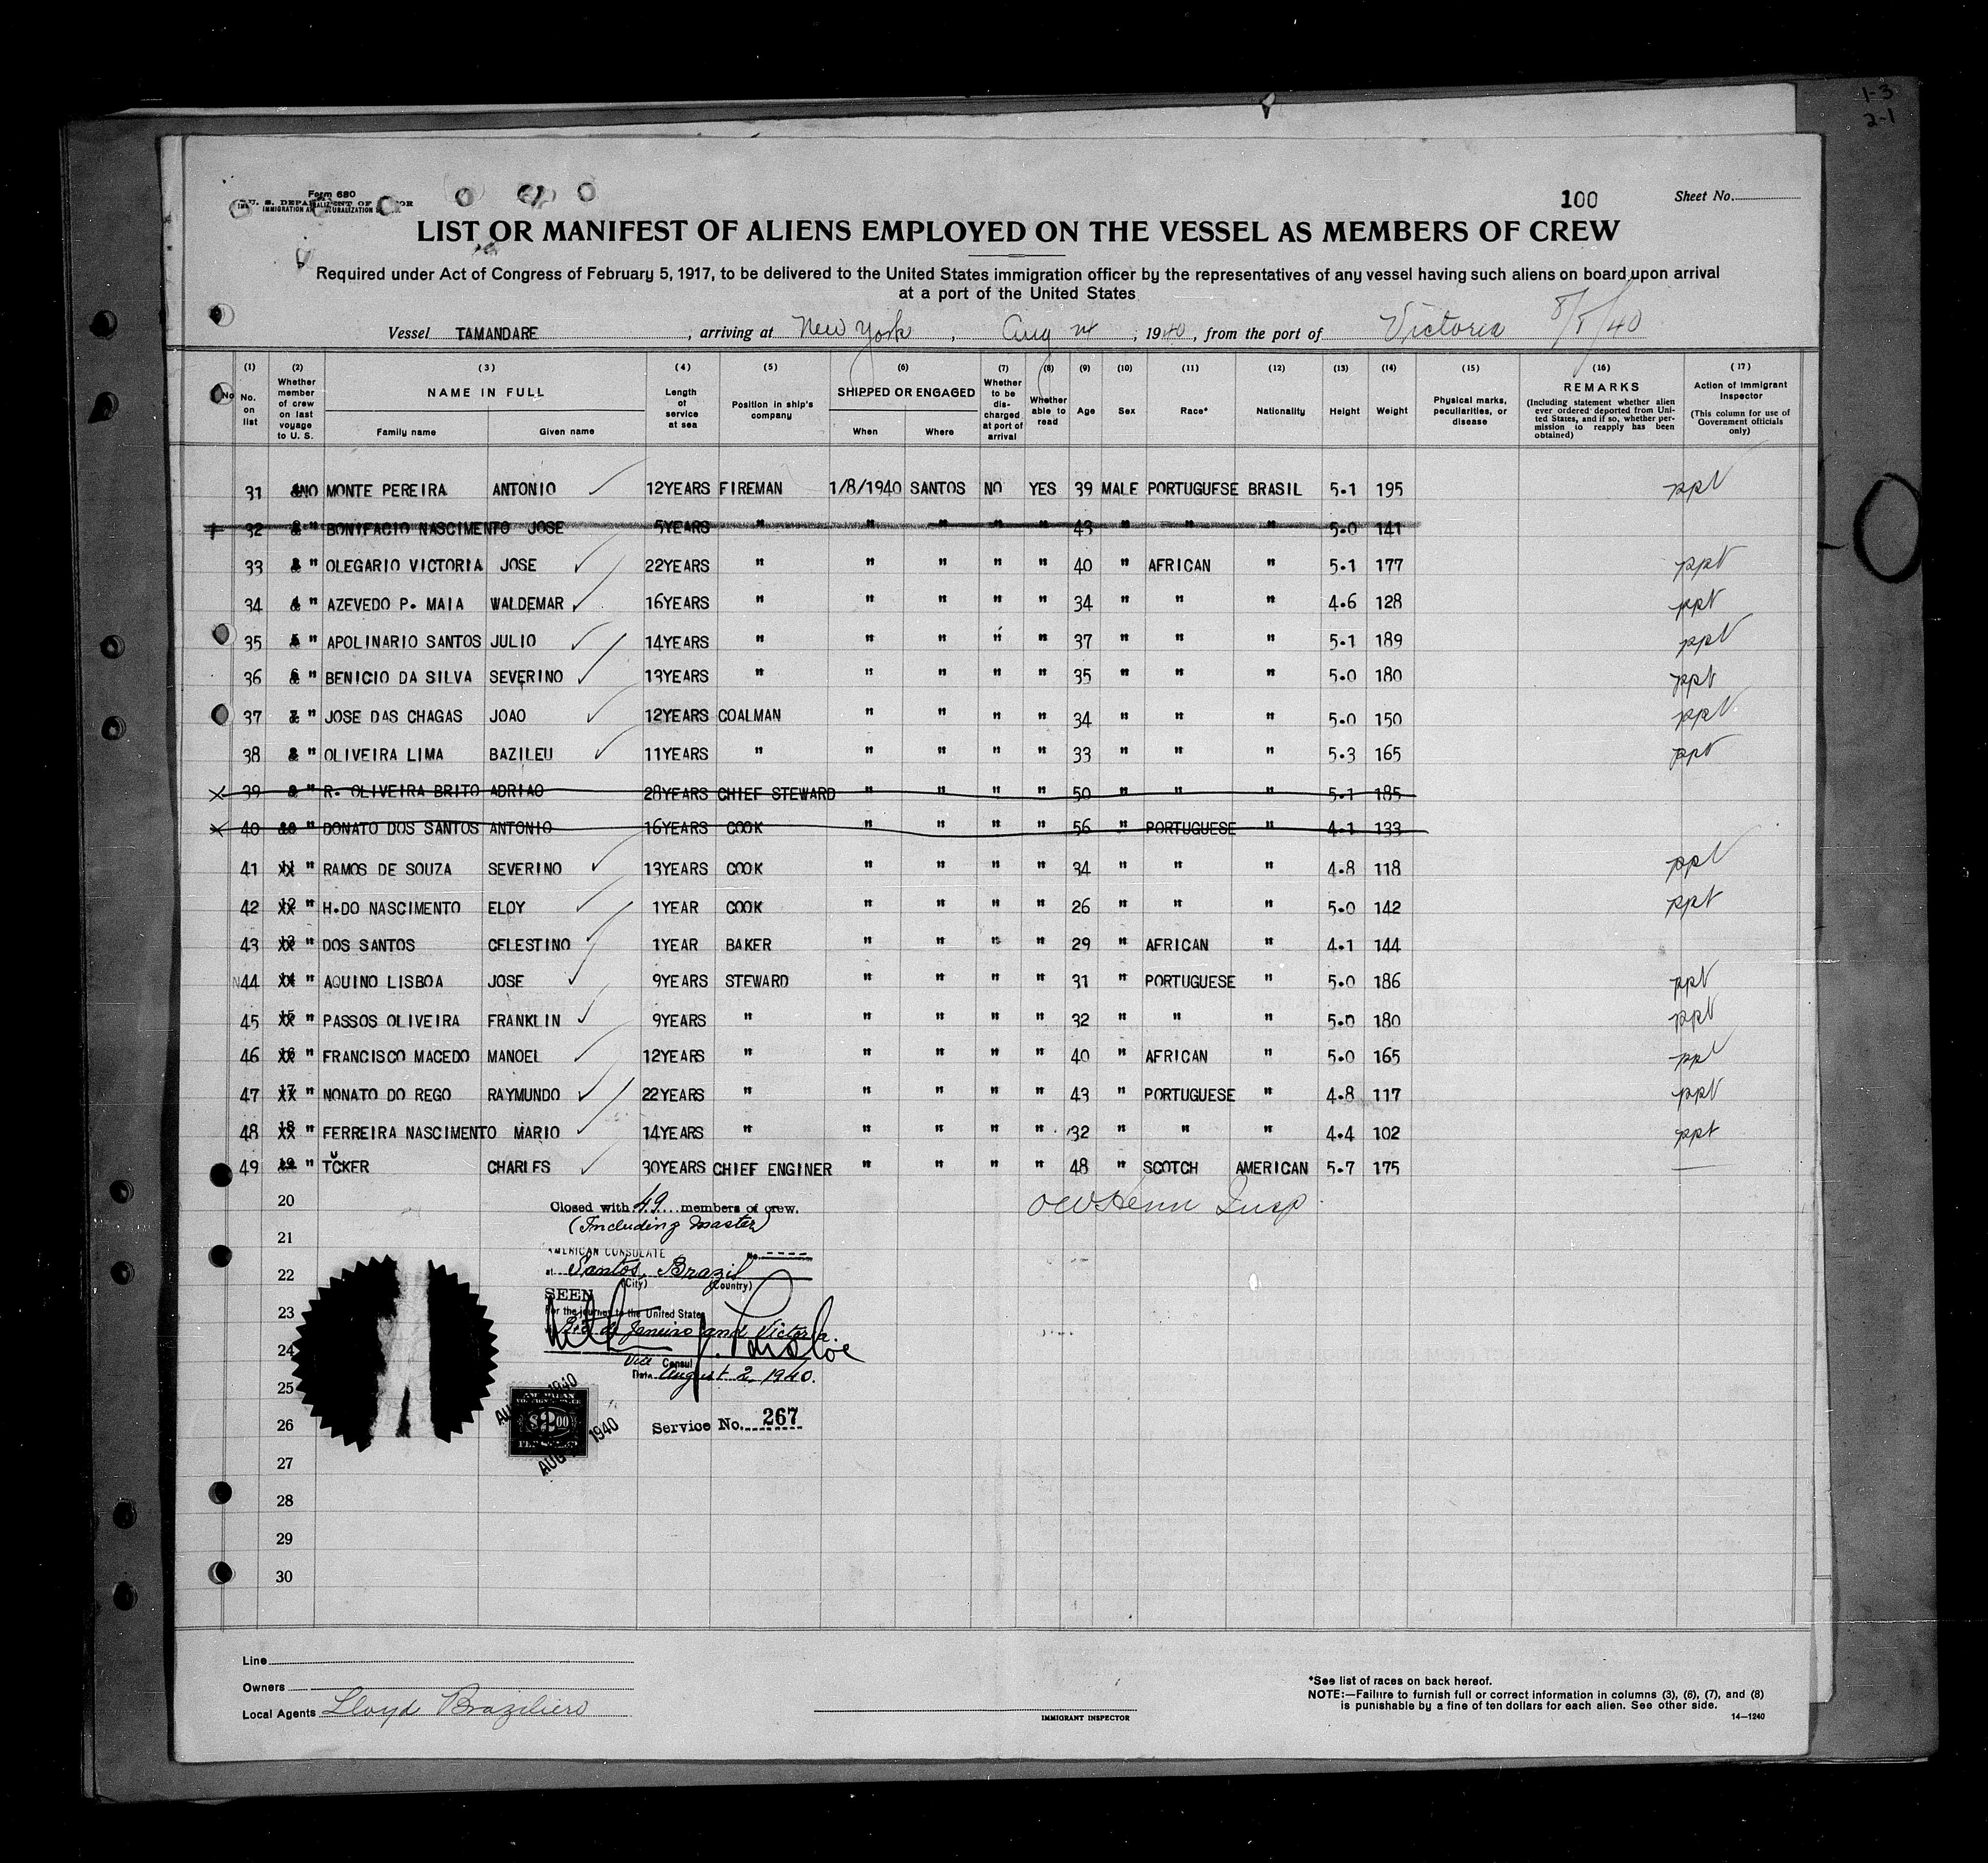 1-3
2-1
Form 680
U. S. DEPARTMENT OF LABOR
IMMIGRATION AND NATURALIZATION
100
Sheet No.
LIST OR MANIFEST OF ALIENS EMPLOYED ON THE VESSEL AS MEMBERS OF CREW
Required under Act of Congress of February 5, 1917, to be delivered to the United States immigration officer by the representatives of any vessel having such aliens on board upon arrival
at a port of the United States
Vessel TAMANDARE, arriving at New York, Aug 24, 1940, from the port of Victoria 8/8/40
(1) No. on list
(2) Whether member of crew on last voyage to U. S.
(3) NAME IN FULL Family name Given name
(4) Length of service at sea
(5) Position in ship's company
(6) SHIPPED OR ENGAGED When Where
(7) Whether to be discharged at port of arrival
(8) Whether able to read
(9) Age
(10) Sex
(11) Race*
(12) Nationality
(13) Height
(14) Weight
(15) Physical marks, peculiarities, or disease
(16) REMARKS (Including statement whether alien ever ordered deported from United States, and if so, whether permission to reapply has been obtained)
(17) Action of Immigrant Inspector (This column for use of Government officials only)
31 NO MONTE PEREIRA ANTONIO 12YEARS FIREMAN 1/8/1940 SANTOS NO YES 39 MALE PORTUGUESE BRASIL 5-1 195 ppt
32 " BONIFACIO NASCIMENTO JOSE 5YEARS " " " " " 43 " " " 5-0 141
33 " OLEGARIO VICTORIA JOSE 22YEARS " " " " " 40 " AFRICAN " 5-1 177 ppt
34 " AZEVEDO P. MAIA WALDEMAR 16YEARS " " " " " 34 " " " 4-6 128 ppt
35 " APOLINARIO SANTOS JULIO 14YEARS " " " " " 37 " " " 5-1 189 ppt
36 " BENICIO DA SILVA SEVERINO 13YEARS " " " " " 35 " " " 5-0 180 ppt
37 " JOSE DAS CHAGAS JOAO 12YEARS COALMAN " " " " 34 " " " 5-0 150 ppt
38 " OLIVEIRA LIMA BAZILEU 11YEARS " " " " " 33 " " " 5-3 165 ppt
39 " R. OLIVEIRA BRITO ADRIAO 28YEARS CHIEF STEWARD " " " " 50 " " " 5-1 185
40 " DONATO DOS SANTOS ANTONIO 16YEARS COOK " " " " 56 " PORTUGUESE " 4-1 133
41 11 " RAMOS DE SOUZA SEVERINO 13YEARS COOK " " " " 34 " " " 4-8 118 ppt
42 12 " H.DO NASCIMENTO ELOY 1YEAR COOK " " " " 26 " " " 5-0 142 ppt
43 13 " DOS SANTOS CELESTINO 1YEAR BAKER " " " " 29 " AFRICAN " 4-1 144
44 14 " AQUINO LISBOA JOSE 9YEARS STEWARD " " " " 31 " PORTUGUESE " 5-0 186 ppt
45 15 " PASSOS OLIVEIRA FRANKLIN 9YEARS " " " " " 32 " " " 5-0 180 ppt
46 16 " FRANCISCO MACEDO MANOEL 12YEARS " " " " " 40 " AFRICAN " 5-0 165 ppt
47 17 " NONATO DO REGO RAYMUNDO 22YEARS " " " " " 43 " PORTUGUESE " 4-8 117 ppt
48 18 " FERREIRA NASCIMENTO MARIO 14YEARS " " " " " 32 " " " 4-4 102 ppt
49 19 " TUCKER CHARLES 30YEARS CHIEF ENGINER " " " " 48 " SCOTCH AMERICAN 5-7 175
20
Closed with 49 members of crew.
(Including Master)
21
AMERICAN CONSULATE No.
22
at Santos, Brazil
(City) (Country)
SEEN
23
For the journey to the United States
Rio de Janeiro and Victoria.
24
Vice Consul
Date August 2, 1940.
25
26
AUG 1940
AUG 1940
$2.00
Service No. 267
27
28
29
30
Line
Owners
Local Agents Lloyd Braziliero
IMMIGRANT INSPECTOR
*See list of races on back hereof.
NOTE:—Failure to furnish full or correct information in columns (3), (6), (7), and (8)
is punishable by a fine of ten dollars for each alien. See other side.
14—1240